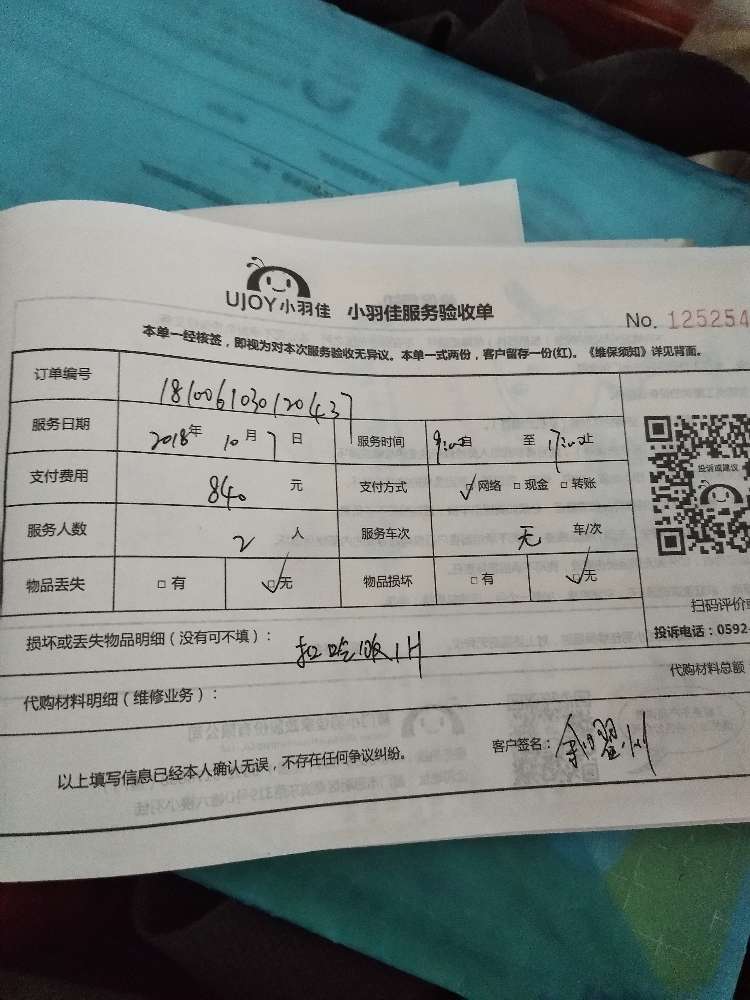 UJOY小羽佳 小羽佳服务验收单
No. 125254
本单一经核签，即视为对本次服务验收无异议。本单一式两份，客户留存一份(红)。《维保须知》详见背面。
订单编号 1810061030120437
服务日期 2018年 10月7日 服务时间 9:00自 至 17:00止
投诉或建议
支付费用 840 元 支付方式 ☑网络 □现金 □转账
服务人数 2 人 服务车次 无 车/次
物品丢失 □有 ☑无 物品损坏 □有 ☑无
扫码评价
损坏或丢失物品明细（没有可不填）：
投诉电话：0592-
代购材料明细（维修业务）：
代购材料总额
以上填写信息已经本人确认无误，不存在任何争议纠纷。
客户签名：